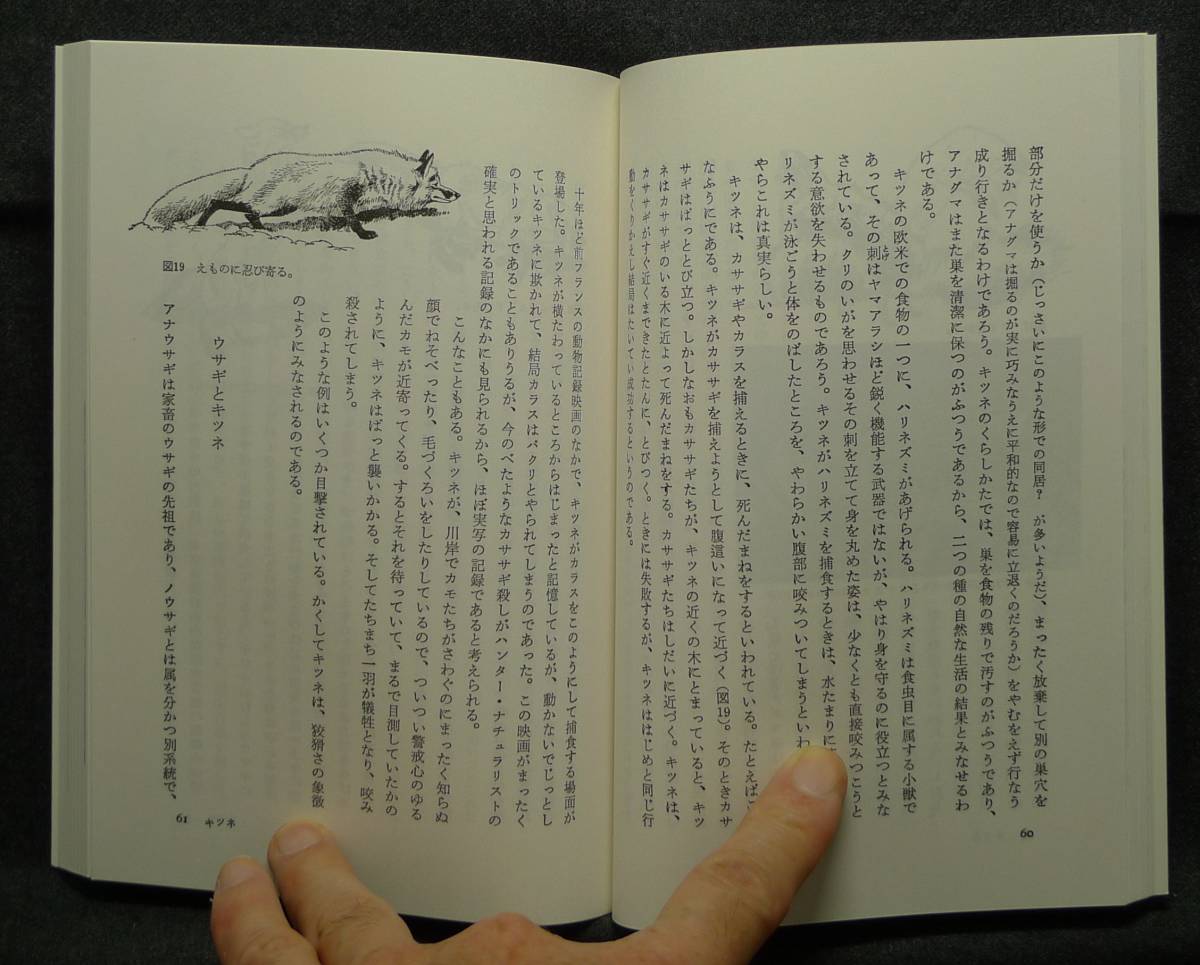 部分だけを使うか（じっさいにこのような形での同居？　が多いようだ）、まったく放棄して別の巣穴を
掘るか（アナグマは掘るのが実に巧みなうえに平和的なので容易に立退くのだろうか）をやむをえず行なう
成り行きとなるわけであろう。キツネのくらしかたでは、巣を食物の残りで汚すのがふつうであり、
アナグマはまた巣を清潔に保つのがふつうであるから、二つの種の自然な生活の結果とみなせるわ
けである。
キツネの欧米での食物の一つに、ハリネズミがあげられる。ハリネズミは食虫目に属する小獣で
あって、その刺はヤマアラシほど鋭く機能する武器ではないが、やはり身を守るのに役立つとみな
とげ
されている。クリのいがを思わせるその刺を立てて身を丸めた姿は、少なくとも直接咬みつこうと
する意欲を失わせるものであろう。キツネがハリネズミを捕食するときは、水たまりに
リネズミが泳ごうと体をのばしたところを、やわらかい腹部に咬みついてしまうといわ
やらこれは真実らしい。
キツネは、カササギやカラスを捕えるときに、死んだまねをするといわれている。たとえば
なふうにである。キツネがカササギを捕えようとして腹這いになって近づく（図19）。そのときカサ
サギはぱっととび立つ。しかしなおもカササギたちが、キツネの近くの木にとまっていると、キツ
ネはカササギのいる木に近よって死んだまねをする。カササギたちはしだいに近づく。キツネは、
カササギがすぐ近くまできたとたんに、とびつく。ときには失敗するが、キツネははじめと同じ行
動をくりかえし結局はたいてい成功するというのである。
60
十年ほど前フランスの動物記録映画のなかで、キツネがカラスをこのようにして捕食する場面が
登場した。キツネが横たわっているところからはじまったと記憶しているが、動かないでじっとし
ているキツネに欺かれて、結局カラスはパクリとやられてしまうのであった。この映画がまったく
のトリックであることもありうるが、今のべたようなカササギ殺しがハンター・ナチュラリストの
確実と思われる記録のなかにも見られるから、ほぼ実写の記録であると考えられる。
こんなこともある。キツネが、川岸でカモたちがさわぐのにまったく知らぬ
顔でねそべったり、毛づくろいをしたりしているので、ついつい警戒心のゆる
んだカモが近寄ってくる。するとそれを待っていて、まるで目測していたかの
ように、キツネはぱっと襲いかかる。そしてたちまち一羽が犠牲となり、咬み
殺されてしまう。
このような例はいくつか目撃されている。かくしてキツネは、狡猾さの象徴
のようにみなされるのである。
図19　えものに忍び寄る。
ウサギとキツネ
アナウサギは家畜のウサギの先祖であり、ノウサギとは属を分かつ別系統で、
61　キツネ